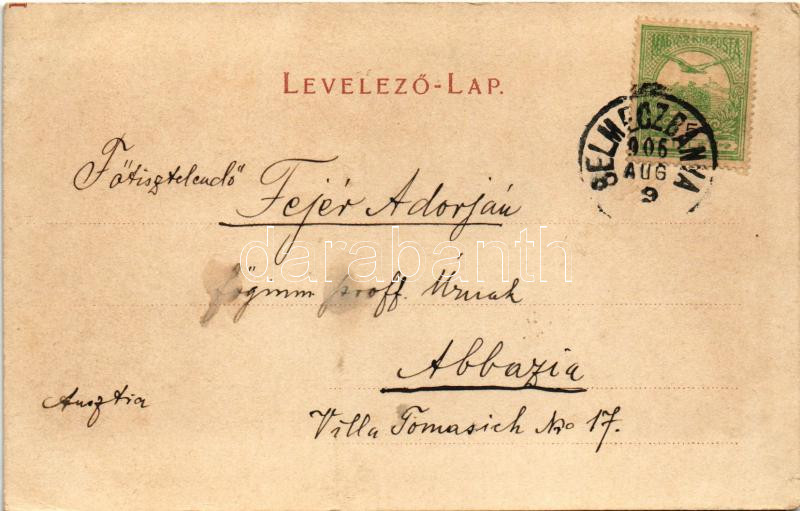 LEVELEZŐ-LAP.
MAGYAR KIR. POSTA
SELMECZBÁNYA
906
AUG
9
Főtisztelendő
Fejér Adorján
főgimn proff. Úrnak
Abbazia
Ausztia
Villa Tomasich No 17.
darabanth